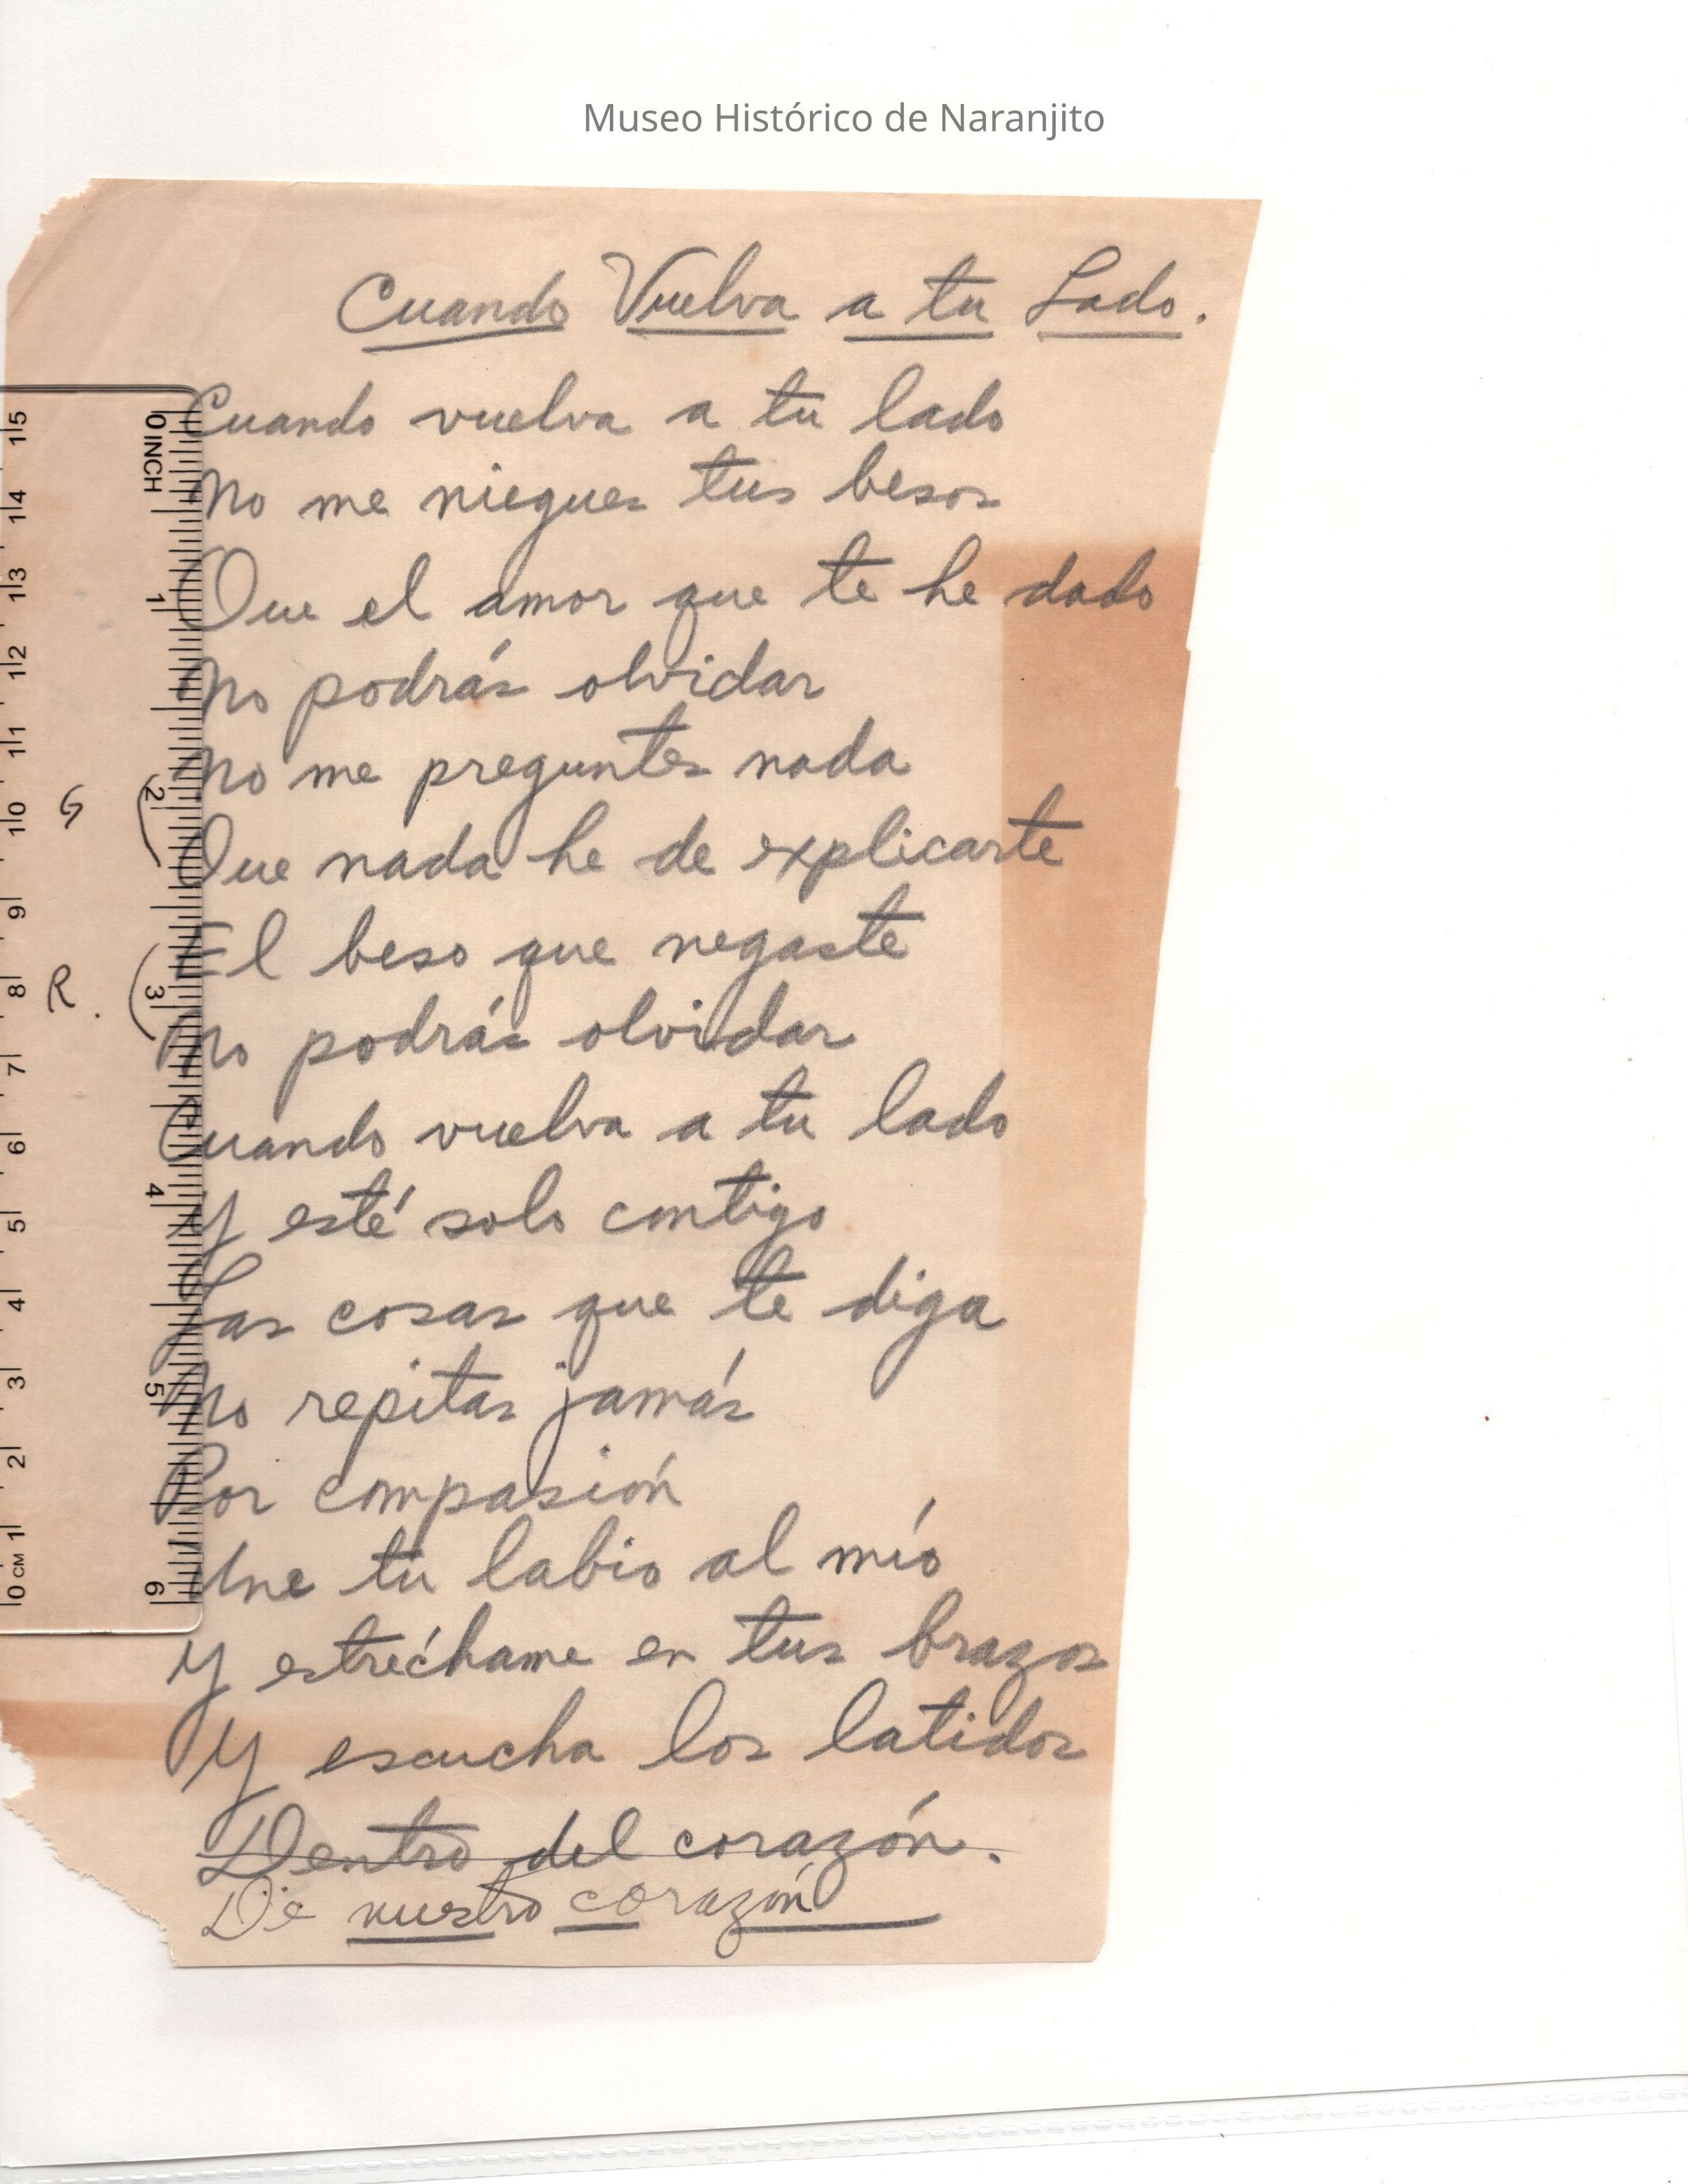 Museo Histórico de Naranjito
Cuando Vuelva a tu Lado.
Cuando vuelva a tu lado
No me niegues tus besos
Que el amor que te he dado
No podrás olvidar
No me preguntes nada
G
Que nada he de explicarte
El beso que negaste
R.
No podrás olvidar
Cuando vuelva a tu lado
Y esté solo contigo
Las cosas que te diga
No repitas jamás
Por compasión
Une tu labio al mío
Y estréchame en tus brazos
Y escucha los latidos
Dentro del corazón.
De nuestro corazón
0 INCH 1 2 3 4 5 6
15 14 13 12 11 10 9 8 7 6 5 4 3 2 1 0 CM